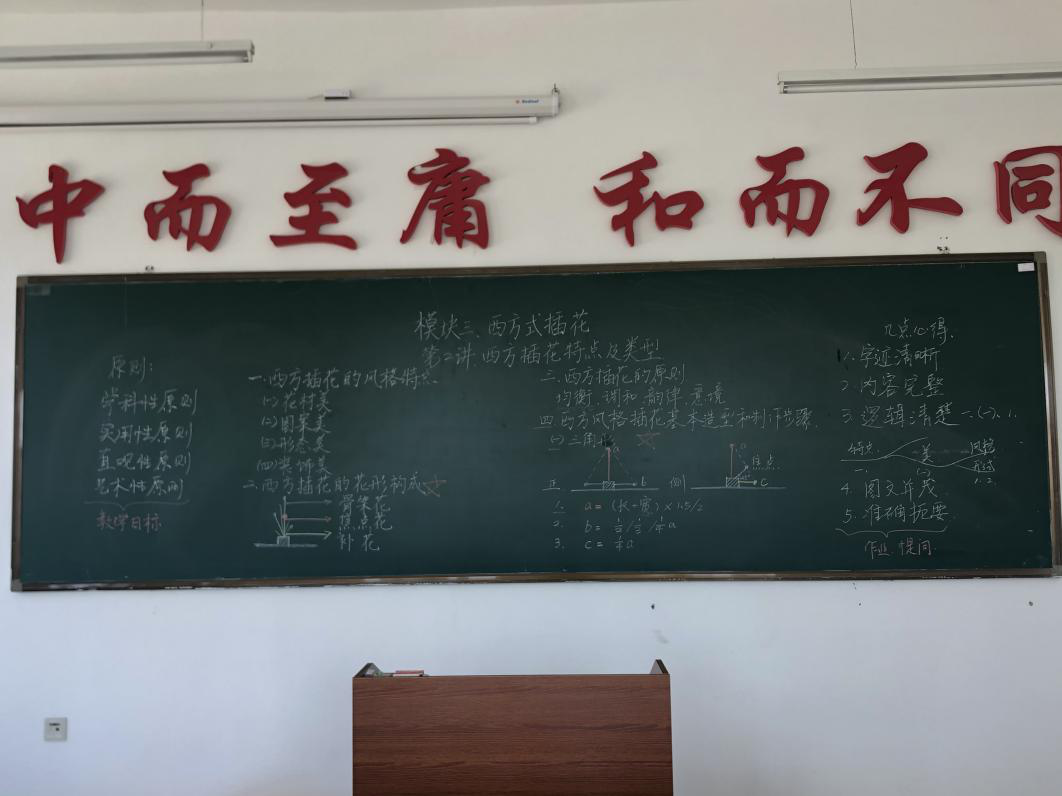 Redleaf
中而至庸 和而不同
模块三、西方式插花
第2讲 西方插花特点及类型
原则:
学科性原则
实用性原则
直观性原则
艺术性原则
教学目标
一.西方插花的风格特点
(一)花材美
(二)图案美
(三)形态美
(四)装饰美
二.西方插花的花形构成☆
骨架花
焦点花
补 花
三.西方插花的原则
均衡、调和、韵律、意境
四.西方风格插花基本造型和制作步骤
(一)三角形 ☆
正
a
b
侧
a
焦点
c
1. a=(长+宽)×1.5/2
3. c=
几点心得.
1.字迹清晰
2.内容完整
3.逻辑清楚 一.(一).1.
特点 美 风格
一. (一) 1. 2.
4.图文并茂
5.准确扼要
作业、提问